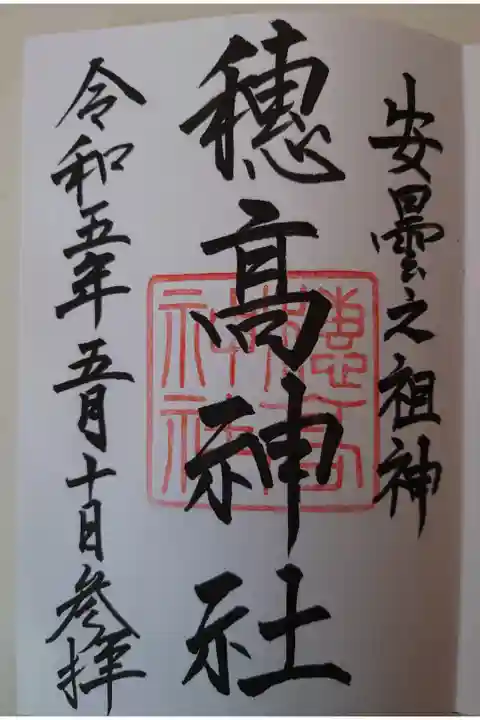 安曇之祖神
穂髙神社
令和五年五月十日参拝
穂高
神社